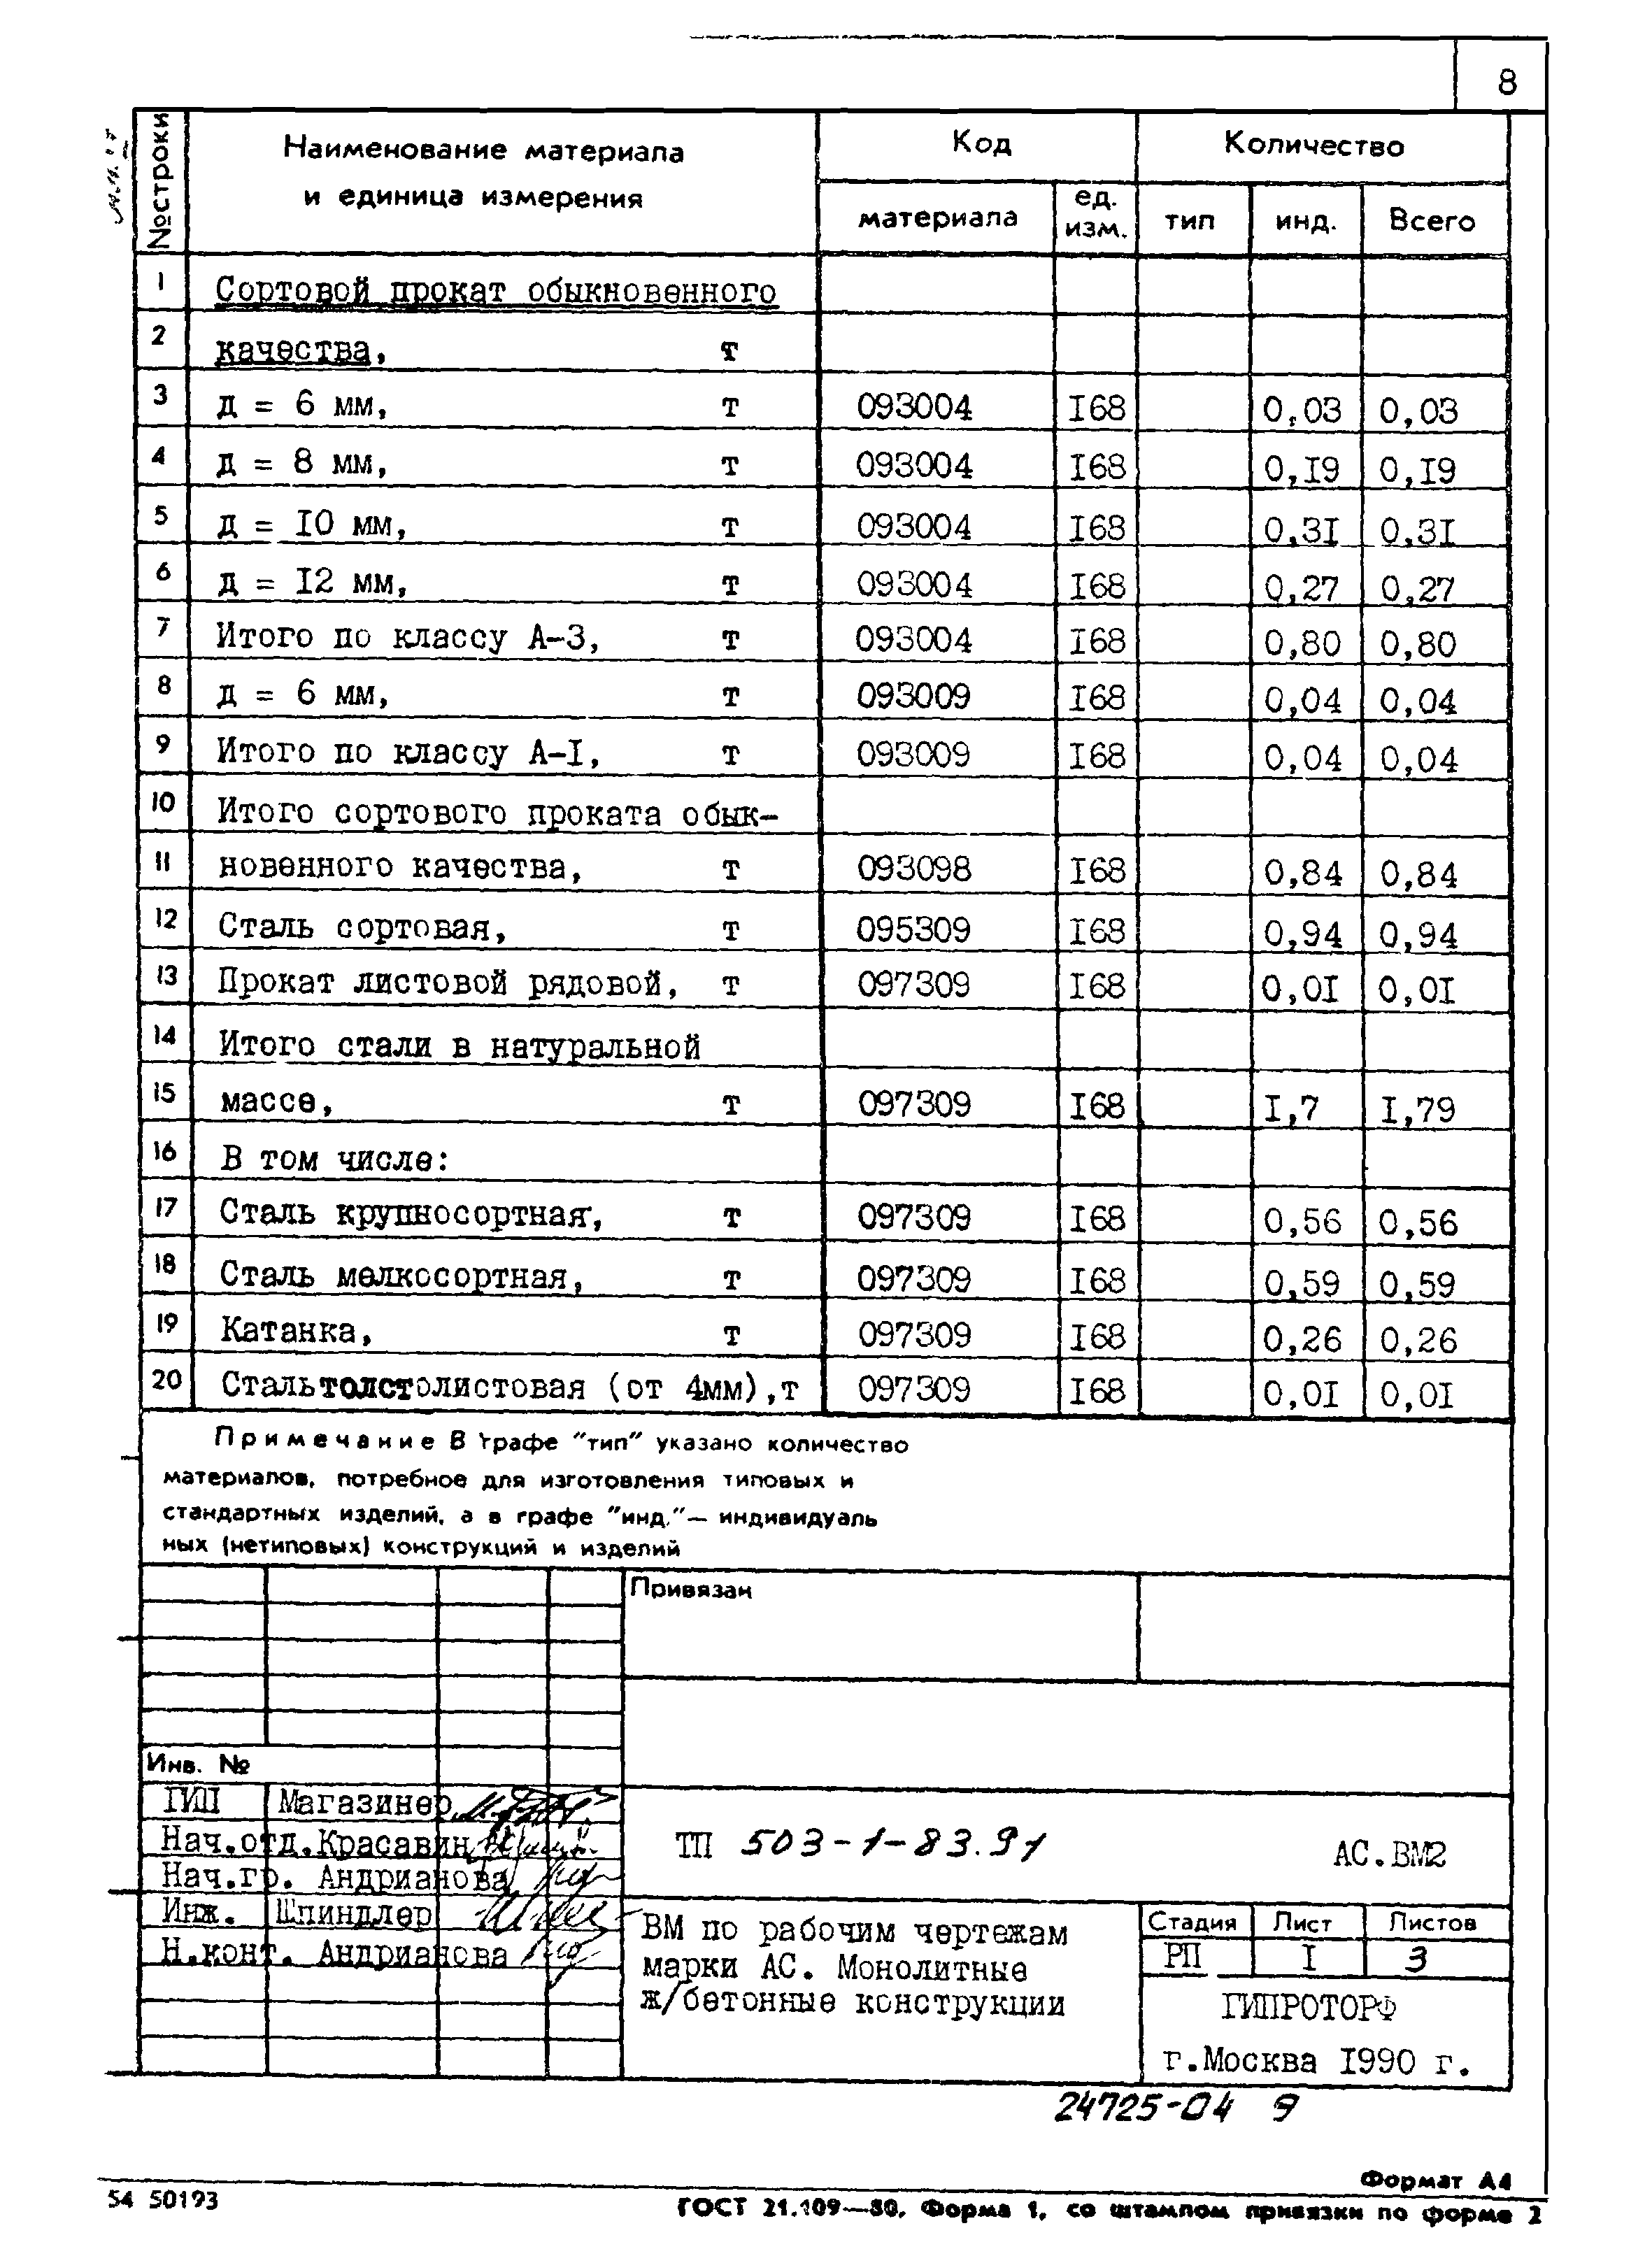 8
№ строки
Наименование материала
и единица измерения
Код
Количество
материала
ед.
изм.
тип
инд.
Всего
1 Сортовой прокат обыкновенного
2 качества, т
3 д = 6 мм, т 093004 I68 0,03 0,03
4 д = 8 мм, т 093004 I68 0,I9 0,I9
5 д = I0 мм, т 093004 I68 0,3I 0,3I
6 д = I2 мм, т 093004 I68 0,27 0,27
7 Итого по классу А-3, т 093004 I68 0,80 0,80
8 д = 6 мм, т 093009 I68 0,04 0,04
9 Итого по классу А-I, т 093009 I68 0,04 0,04
10 Итого сортового проката обык-
11 новенного качества, т 093098 I68 0,84 0,84
12 Сталь сортовая, т 095309 I68 0,94 0,94
13 Прокат листовой рядовой, т 097309 I68 0,0I 0,0I
14 Итого стали в натуральной
15 массе, т 097309 I68 I,7 I,79
16 В том числе:
17 Сталь крупносортная, т 097309 I68 0,56 0,56
18 Сталь мелкосортная, т 097309 I68 0,59 0,59
19 Катанка, т 097309 I68 0,26 0,26
20 Сталь толстолистовая (от 4мм),т 097309 I68 0,0I 0,0I
Примечание В графе "тип" указано количество
материалов, потребное для изготовления типовых и
стандартных изделий, а в графе "инд."— индивидуаль
ных (нетиповых) конструкций и изделий
Привязан
Инв. №
ГИП Магазинер
Нач.отд.Красавин
Нач.гр. Андрианова
Инж. Шпиндлер
Н.конт. Андрианова
ТП 503-1-83.91 АС.ВМ2
ВМ по рабочим чертежам
марки АС. Монолитные
ж/бетонные конструкции
Стадия Лист Листов
РП I 3
ГИПРОТОРФ
г.Москва I990 г.
24725-04 9
Формат А4
54 50193
ГОСТ 21.109—80. Форма 1, со штампом привязки по форме 2